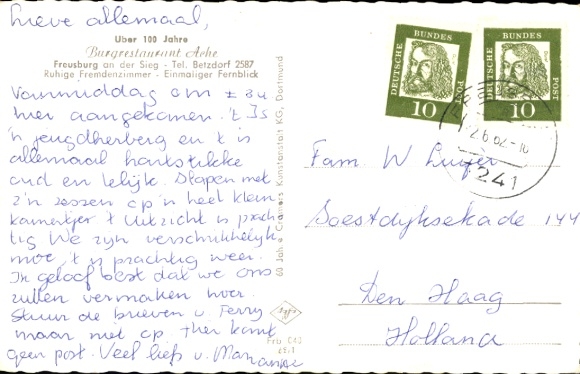 Lieve allemaal,
Über 100 Jahre
Burgrestaurant Arhe
Freusburg an der Sieg - Tel. Betzdorf 2587
Ruhige Fremdenzimmer - Einmaliger Fernblick
Vanmiddag om ± 3 u
hier aangekomen. 't Is
'n jeugdherberg en 't is
allemaal hartstikke
oud en lelijk. Slapen met
z'n zessen op 'n heel klein
kamertje. 't Uitzicht is prach
tig We zijn verschrikkelijk
moe. 't is prachtig weer.
Ik geloof best dat we ons
zullen vermaken hier.
Stuur de brieven v. Ferry
maar niet op. Hier komt
geen post. Veel liefs v. Marianne
60 Jahre Cramers Kunstanstalt KG, Dortmund
cekade
Fro 640
DEUTSCHE BUNDESPOST
10
DEUTSCHE BUNDESPOST
10
2.6.62-16
241
Fam. W
Soestdijksekade 144
Den Haag
Holland